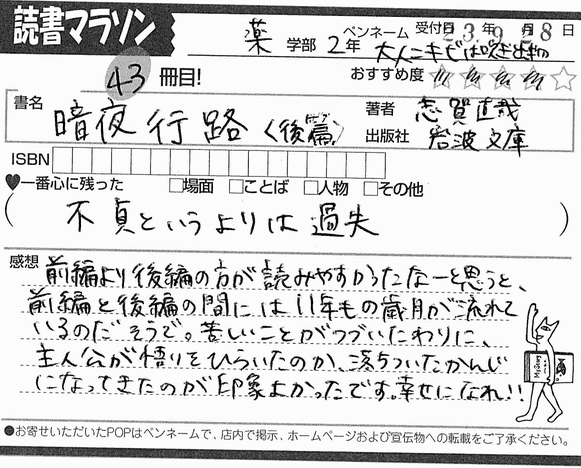 読書マラソン
薬 学部 2年 ペンネーム 大人ニキビは吹き出物 受付日 23年 9月 28日
43 冊目! おすすめ度 ★★★★☆
書名 暗夜行路〈後篇〉 著者 志賀直哉
出版社 岩波文庫
ISBN
♥一番心に残った □場面 □ことば □人物 □その他
( 不貞というよりは過失 )
感想 前編より後編の方が読みやすかったなーと思うと、
前編と後編の間には11年もの歳月が流れて
いるのだそうで。苦しいことがつづいたわりに、
主人公が悟りをひらいたのか、落ちついたかんじ
になってきたのが印象よかったです。幸せになれ!!
●お寄せいただいたPOPはペンネームで、店内で掲示、ホームページおよび宣伝物への転載をご了承ください。